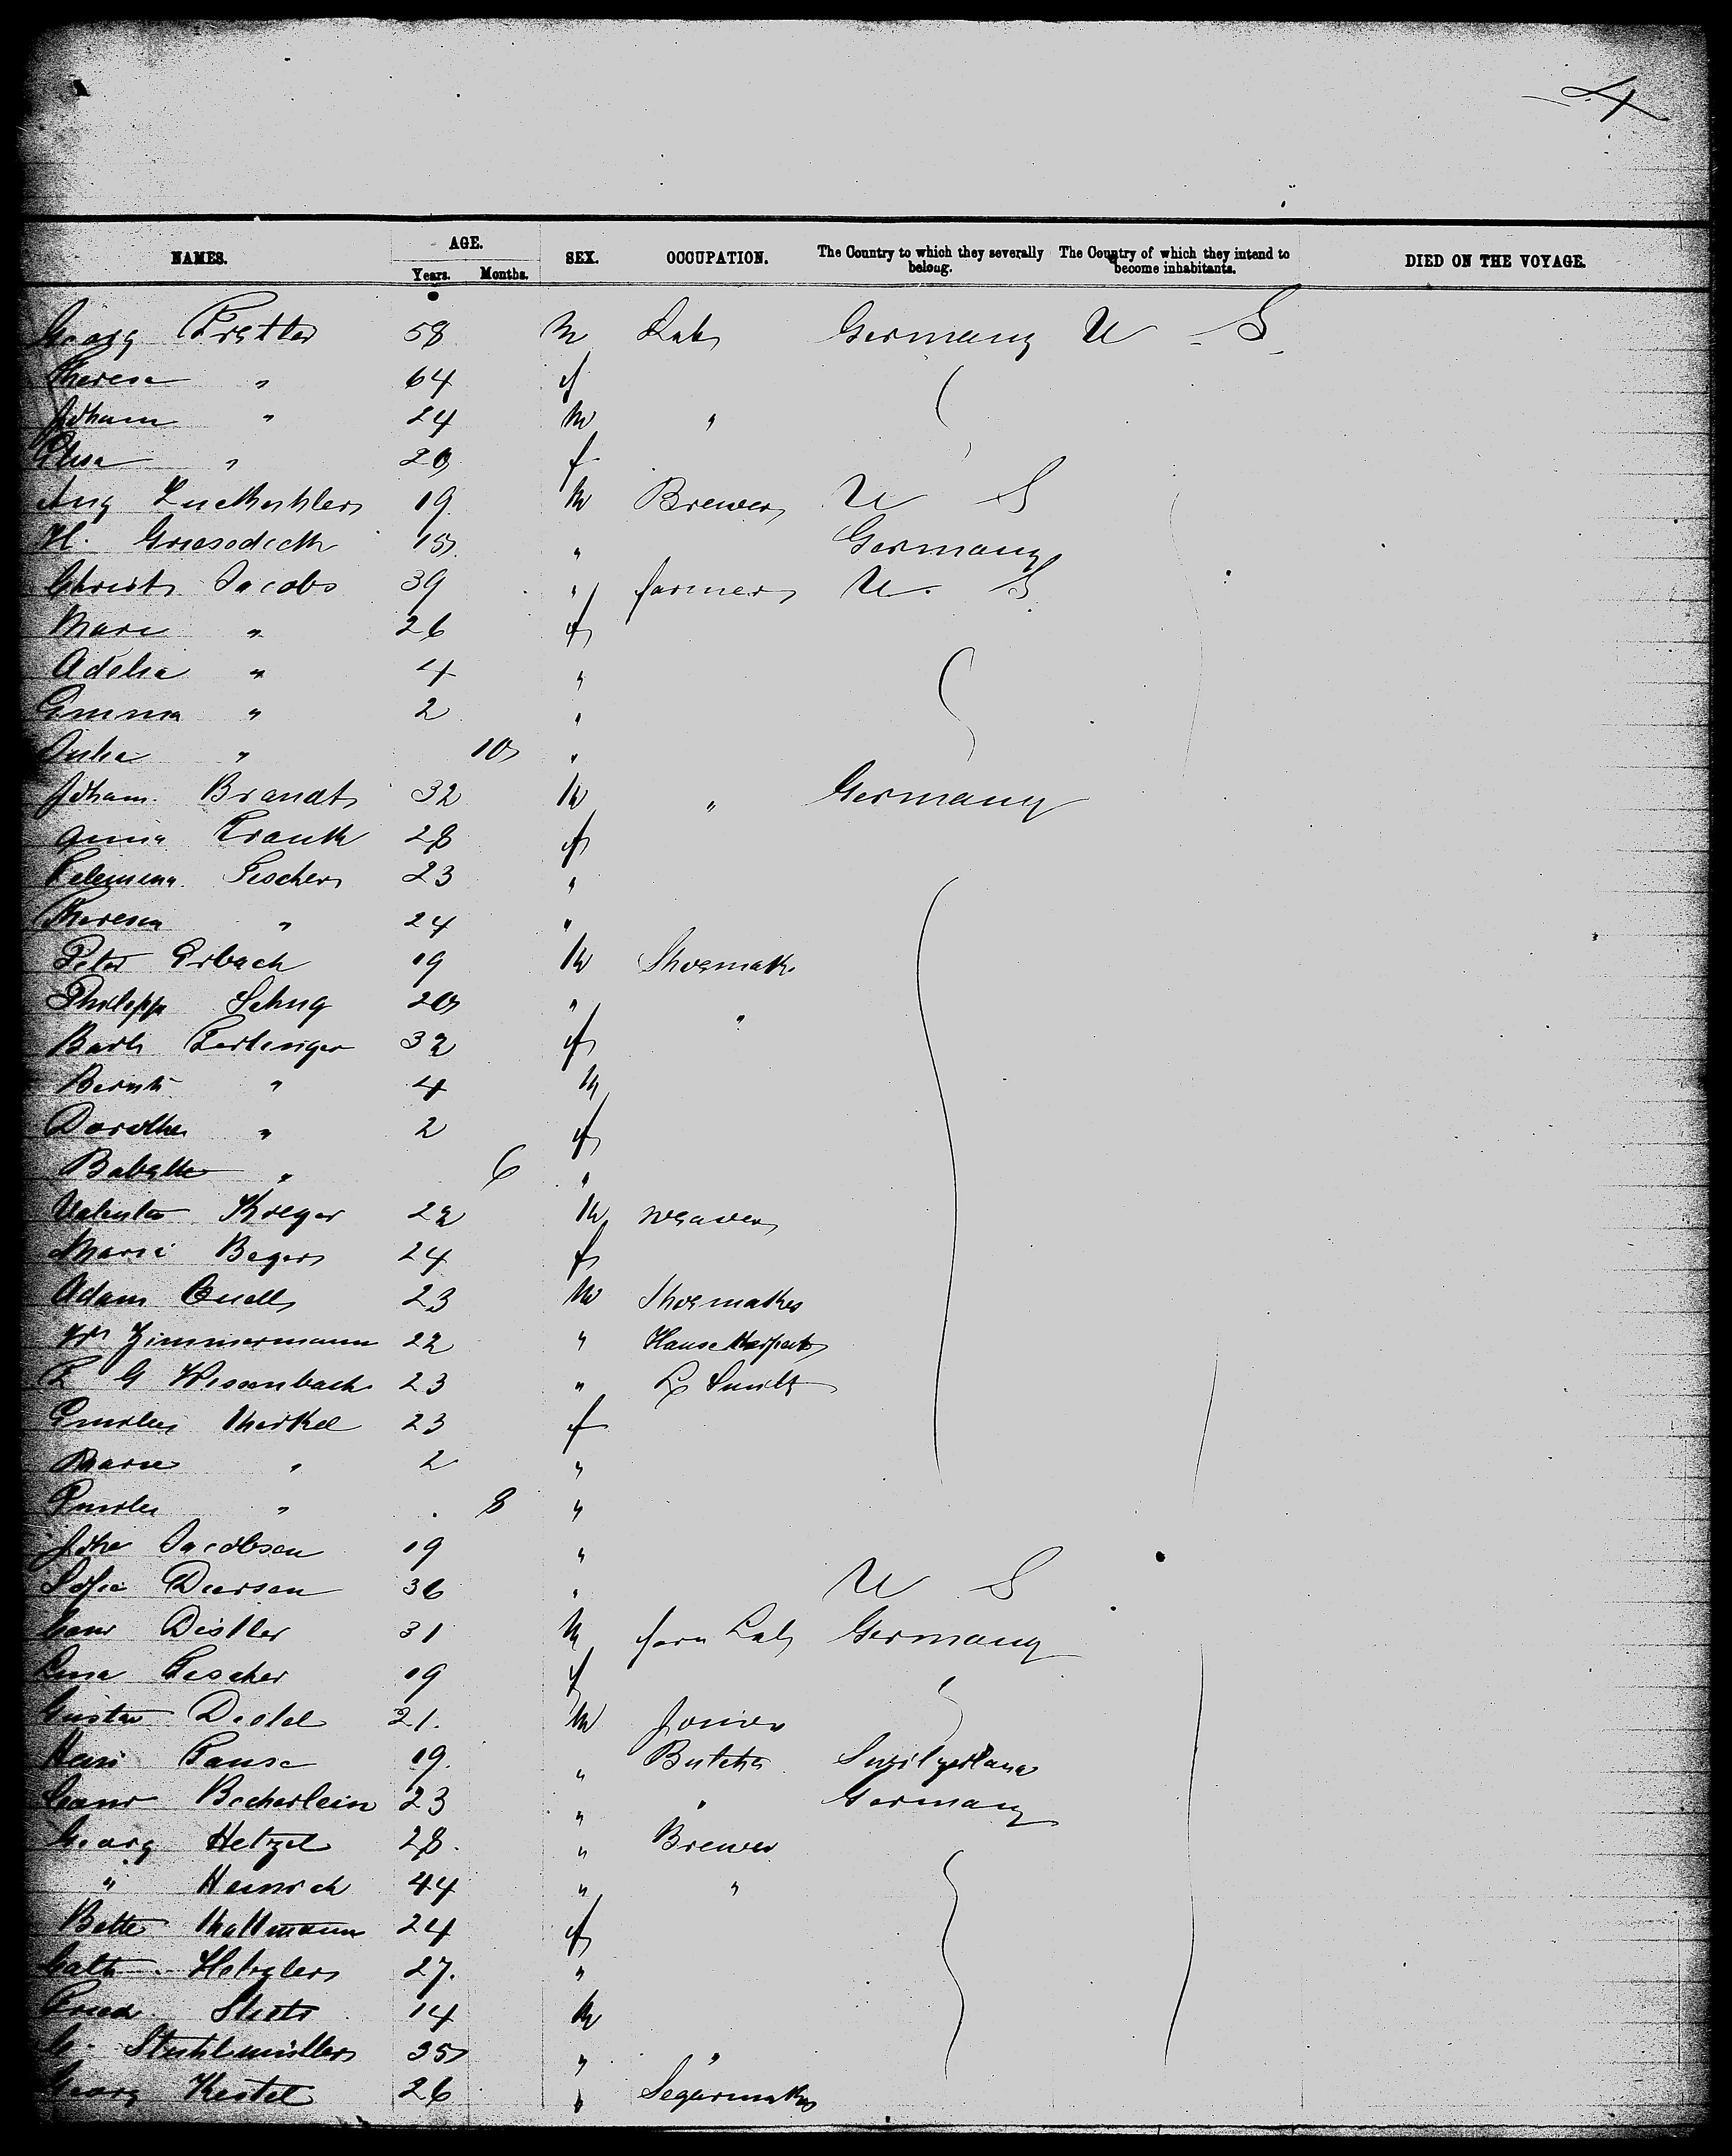 4
NAMES. AGE. Years. Months. SEX. OCCUPATION. The Country to which they severally belong. The Country of which they intend to become inhabitants. DIED ON THE VOYAGE.
Georg 58 M Lab Germany U S
Theresa " 64 f
Joham " 24 M "
Elisa " 20 f
Aug 19 M Brewer U S
H. 15 " Germany
Christ Jacobs 39 " farmer U. S
Marie " 26 f
Adelia " 4 "
Emma " 2 "
Julia " 10 "
Joham. Brandt 32 M " Germany
Anna Krauth 28 f
Fischer 23 "
Theresia " 24 "
Peter Erbach 19 M Shoemak
Philipp Schug 20 " "
Barb 32 f
" 4 M
Dorothea " 2 f
Babette " 6 "
Valentin Krieger 22 M weaver
Marie Beyer 24 f
Adam Quell 23 M Shoemaker
Wm Zimmermann 22 "
G Wissenbach 23 " L Smith
Emilie Merkel 23 f
Marie " 2 "
Emilie " 8 "
Jacobsen 19 "
Sofie 36 " U S
Distler 31 M farm Lab Germany
Lina Fischer 19 f
Gustav Diedel 21. M Joiner
19. " Butcher Switzerland
Becherlein 23 " " Germany
Georg Hetzel 28. " Brewer
" Heinrich 44 " "
Bette 24 f
Cath 27. "
Fried. 14 M
C. Stuhlmüller 35 " "
Georg Kestel 26 " Segarmaker